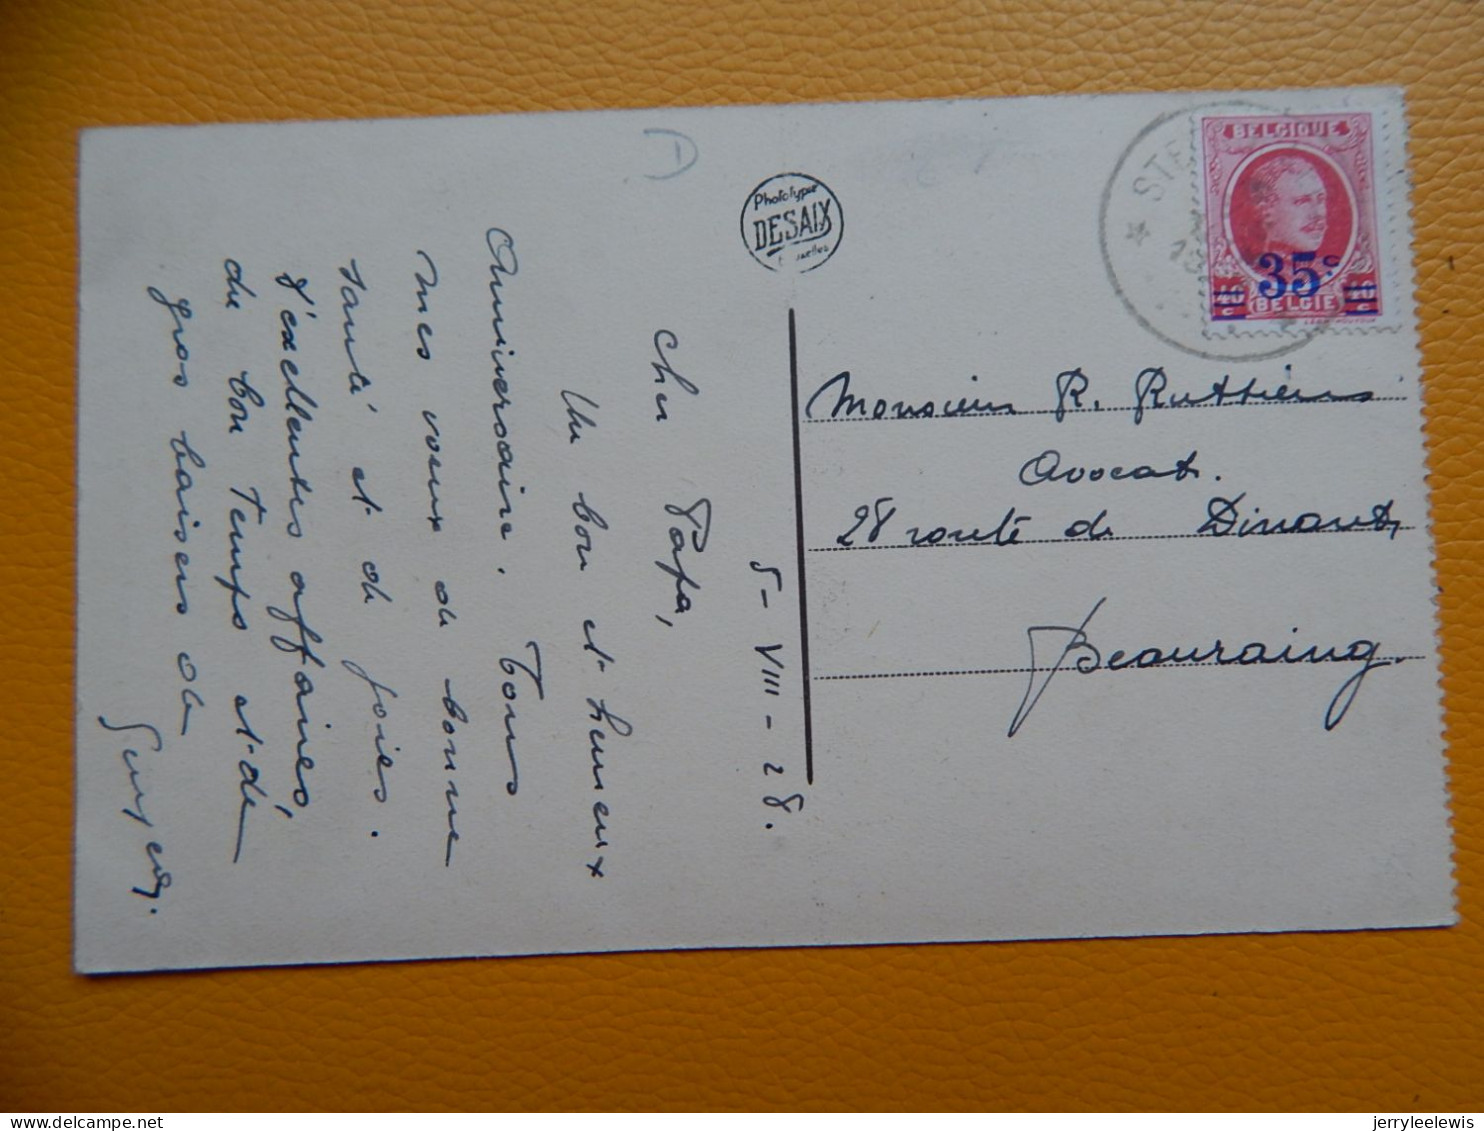 Phototypie
DESAIX
5-VIII-28.
Cher Papa,
Un bon et heureux
Anniversaire. Tous
mes voeux de bonne
santé et de joies.
d'exellentes affaires,
du bon Temps et de
gros baisers de
BELGIQUE
35c
40 c
BELGIE
STE
Monsieur R. Ruttiens
Avocat.
28 route de Dinant,
Beauraing.
jerryleelewis